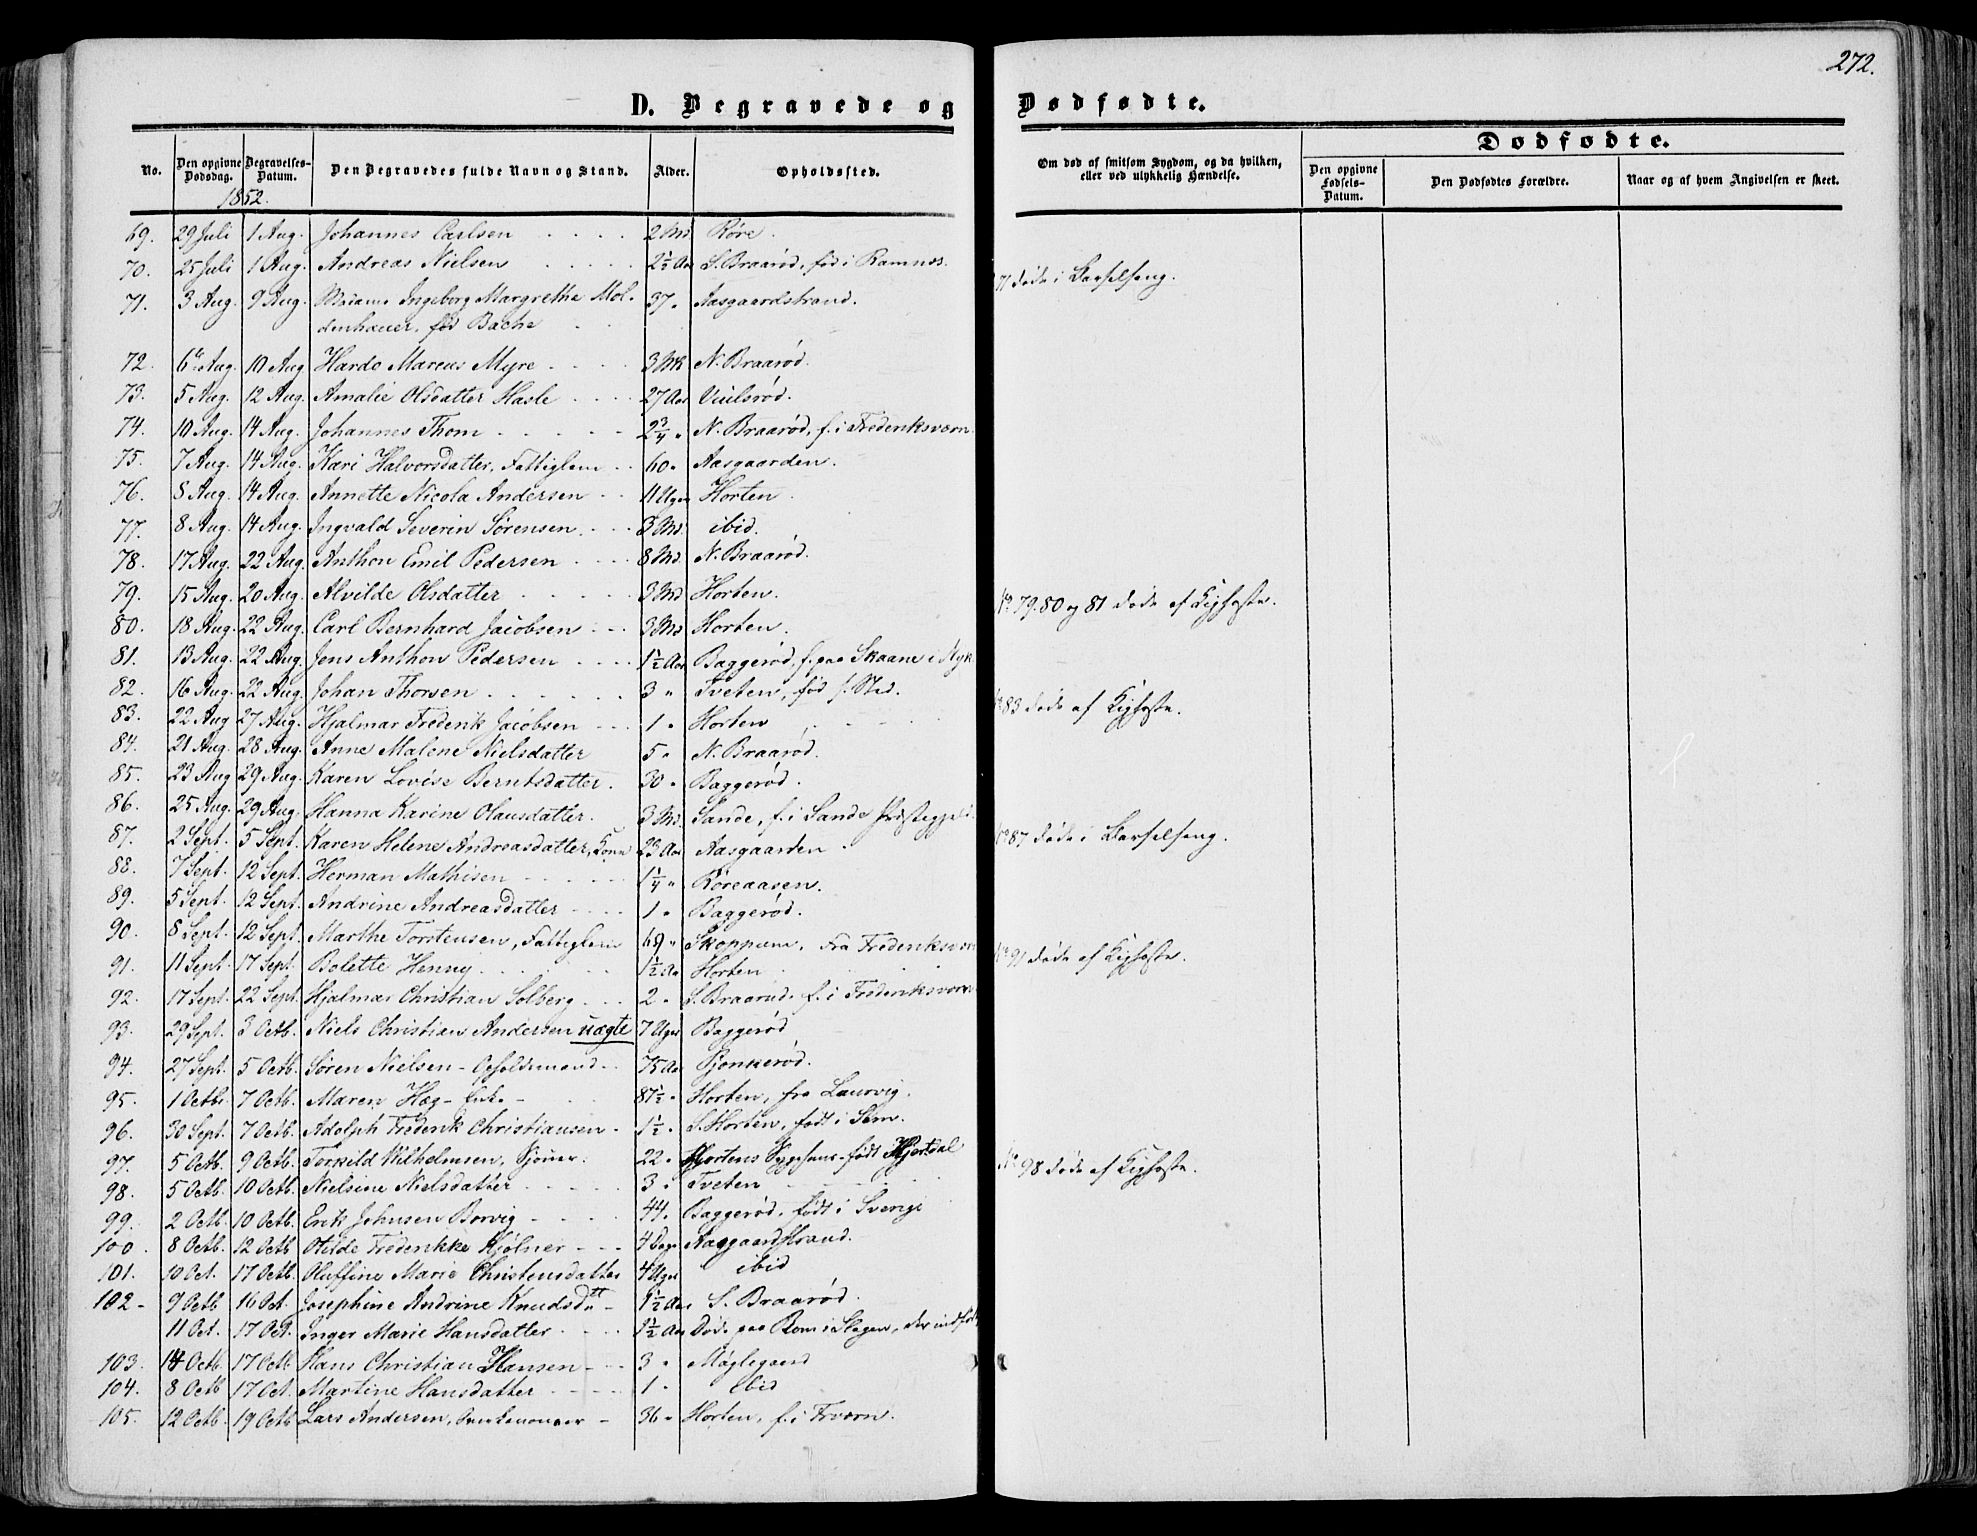 272.
D. Begravede og Dødfødte.
No. Den opgivne Dødsdag. Begravelses-Datum. Den Begravedes fulde Navn og Stand. Alder. Opholdssted.
Om død af smitsom Sygdom, og da hvilken, eller ved ulykkelig Hændelse.
Dødfødte.
Den opgivne Fødsels-Datum. Den Dødfødtes Forældre. Naar og af hvem Angivelsen er skeet.
1852.
69. 29 Juli 1 Aug. Johannes Carlsen 2 Md Røre.
70. 25 Juli 1 Aug. Andreas Nielsen 2½ Aar S. Braarød, fød i Ramnæs.
71. 3 Aug. 9 Aug. Madame Ingeborg Margrethe Mol-
denhauer, fød Bache 37 " Aasgaardstrand.
71 døde i Barselseng.
72. 6te Aug. 10 Aug Hardo Marcus Myre 3 Md N. Braarød.
73. 5 Aug. 12 Aug. Amalie Olsdatter Hasle 27 Aar Viulsrød.
74. 10 Aug. 14 Aug. Johannes Thom 2¾ " N. Braarød, f. i Frederiksværn
75. 7 Aug. 14 Aug. Kari Halvorsdatter, Fattiglem 60 " Aasgaarden.
76. 8 Aug. 14 Aug. Annette Nicola Andersen 11 Uger Horten.
77. 8 Aug. 14 Aug. Ingvald Severin Sørensen 3 Md. ibid.
78. 17 Aug. 22 Aug. Anthon Emil Pedersen 8 Md. N. Braarød.
79. 15 Aug. 20 Aug. Alvilde Olsdatter 3 Md Horten.
No 79. 80 og 81 døde af Kighoste.
80. 18 Aug. 22 Aug. Carl Bernhard Jacobsen 3 Md Horten.
81. 13 Aug. 22 Aug. Jens Anthon Pedersen 1½ Aar Baggerød, f. paa Skaane i Nyk.
82. 16 Aug. 22 Aug. Johan Thorsen 3 " Tveten, fød s. Sted.
83. 22 Aug 27 Aug. Hjalmar Frederik Jacobsen 1 " Horten
No 83 døde af Kighoste.
84. 21 Aug. 28 Aug. Anne Malene Nielsdatter 5 " N. Braarød.
85. 23 Aug 29 Aug. Karen Lovise Berntsdatter. 30 " Baggerød.
86. 25 Aug. 29 Aug. Hanna Karine Olausdatter. 3 Md. Sande, f. i Sande Præstegjeld
87. 2 Sept. 5 Sept. Karen Helene Andreasdatter, Kone 23 Aar Aasgaarden.
No 87 døde i Barselseng.
88. 7 Sept. 12 Sept. Herman Mathisen 1¼ " Røreaasen.
89. 5 Sept. 12 Sept. Andrine Andreasdatter 1 " Baggerød.
90. 8 Sept. 12 Sept. Marthe Torstensen, Fattiglem 69 " Skoppum, fra Frederiksværn
91. 11 Sept. 17 Sept. Bolette Henny 1½ Aar Horten
No 91 døde af Kighoste.
92. 17 Sept. 22 Sept. Hjalmar Christian Solberg 2 " S. Braarud. f. i Frederiksværn
93. 29 Sept. 3 Octb. Niels Christian Andersen uægte 7 Uger Baggerød
94. 27 Sept. 5 Octb. Søren Nielsen - Opholdsmand 75 Aar Pjonkerød.
95. 1 Octbr. 7 Octb. Maren Høg - Enke - 87½ " Horten, fra Laurvig.
96. 30 Sept. 7 Octb. Adolph Frederik Christiansen 1½ " S. Horten, født i Sem.
97. 5 Octb. 9 Octb. Torkild Wilhelmsen, 22 " Hortens Sygehuus - født Hjertdal
98. 5 Octb. 10 Octb. Nielsine Nielsdatter 3 " Tveten
No 98 døde af Kighoste.
99. 2 Octb. 10 Octb. Erik Johnsen Borvig 44 " Baggerød, født i Sverige
100. 8 Octb. 12 Octb Otilde Frederikke Kjølner 4 Dage Aasgaardstrand.
101. 10 Oct. 17 Octb. Oluffine Marie Christensdatter 4 Uger ibid
102 - 9 Octb 16 Oct. Josephine Andrine Knudsdtt - 1½ Aar S. Braarød.
11 Oct. 17 Oct. Inger Marie Hansdatter 1½ Aar Døde paa Rom i Slagen, der indført
103. 14 Octb 17 Octb Hans Christian Hansen 3 " Møglegaard
104. 8 Octb 17 Oct. Martine Hansdatter 1 " Ibid
105. 12 Octb. 19 Octb Lars Andersen, 36 " Horten, f. i Frværn.